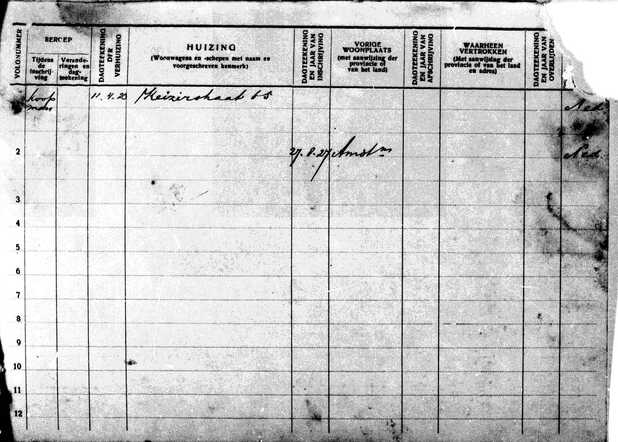 VOLGNUMMER
BEROEP
Tijdens de inschrijving
Veranderingen en dagteekening
DAGTEEKENING DER VERHUIZING
HUIZING
(Woonwagens en -schepen met naam en voorgeschreven kenmerk)
DAGTEEKENING EN JAAR VAN INSCHRIJVING
VORIGE WOONPLAATS
(met aanwijzing der provincie of van het land)
DAGTEEKENING EN JAAR VAN AFSCHRIJVING
WAARHEEN VERTROKKEN
(Met aanwijzing der provincie of van het land en adres)
DAGTEEKENING EN JAAR VAN OVERLIJDEN
koop man 11.4.23 Keizerstraat 65 Ned.
2 27.8.27 Amstm Ned.
3
4
5
6
7
8
9
10
11
12